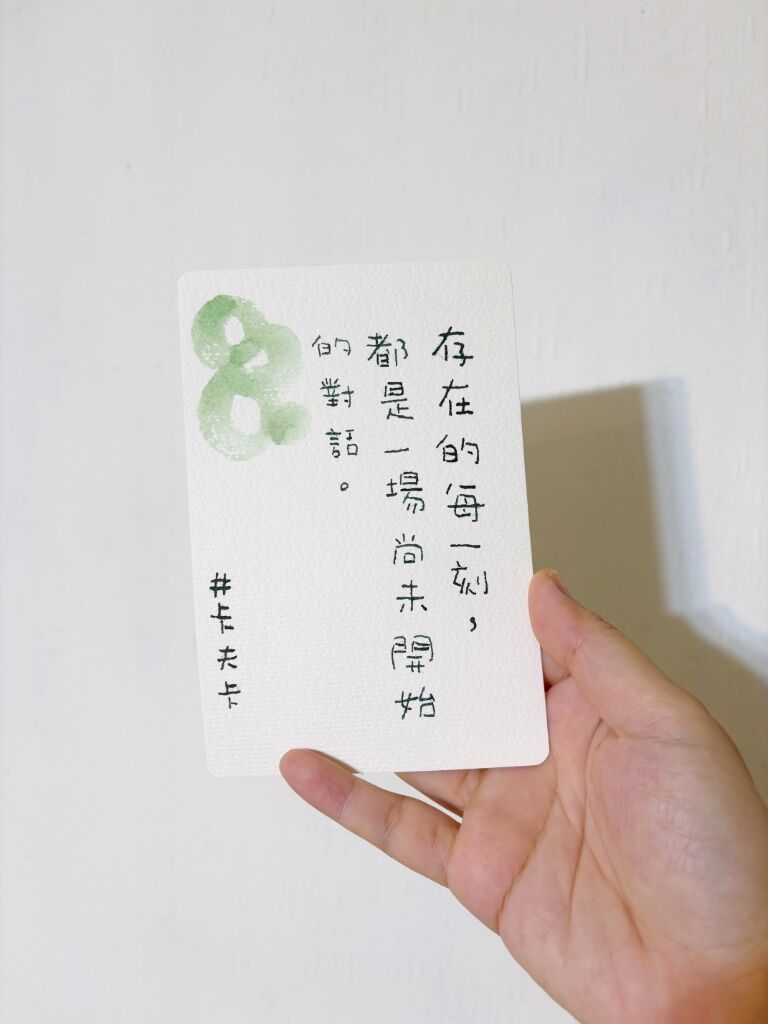 存在的每一刻，
都是一場尚未開始
的對話。
#卡夫卡